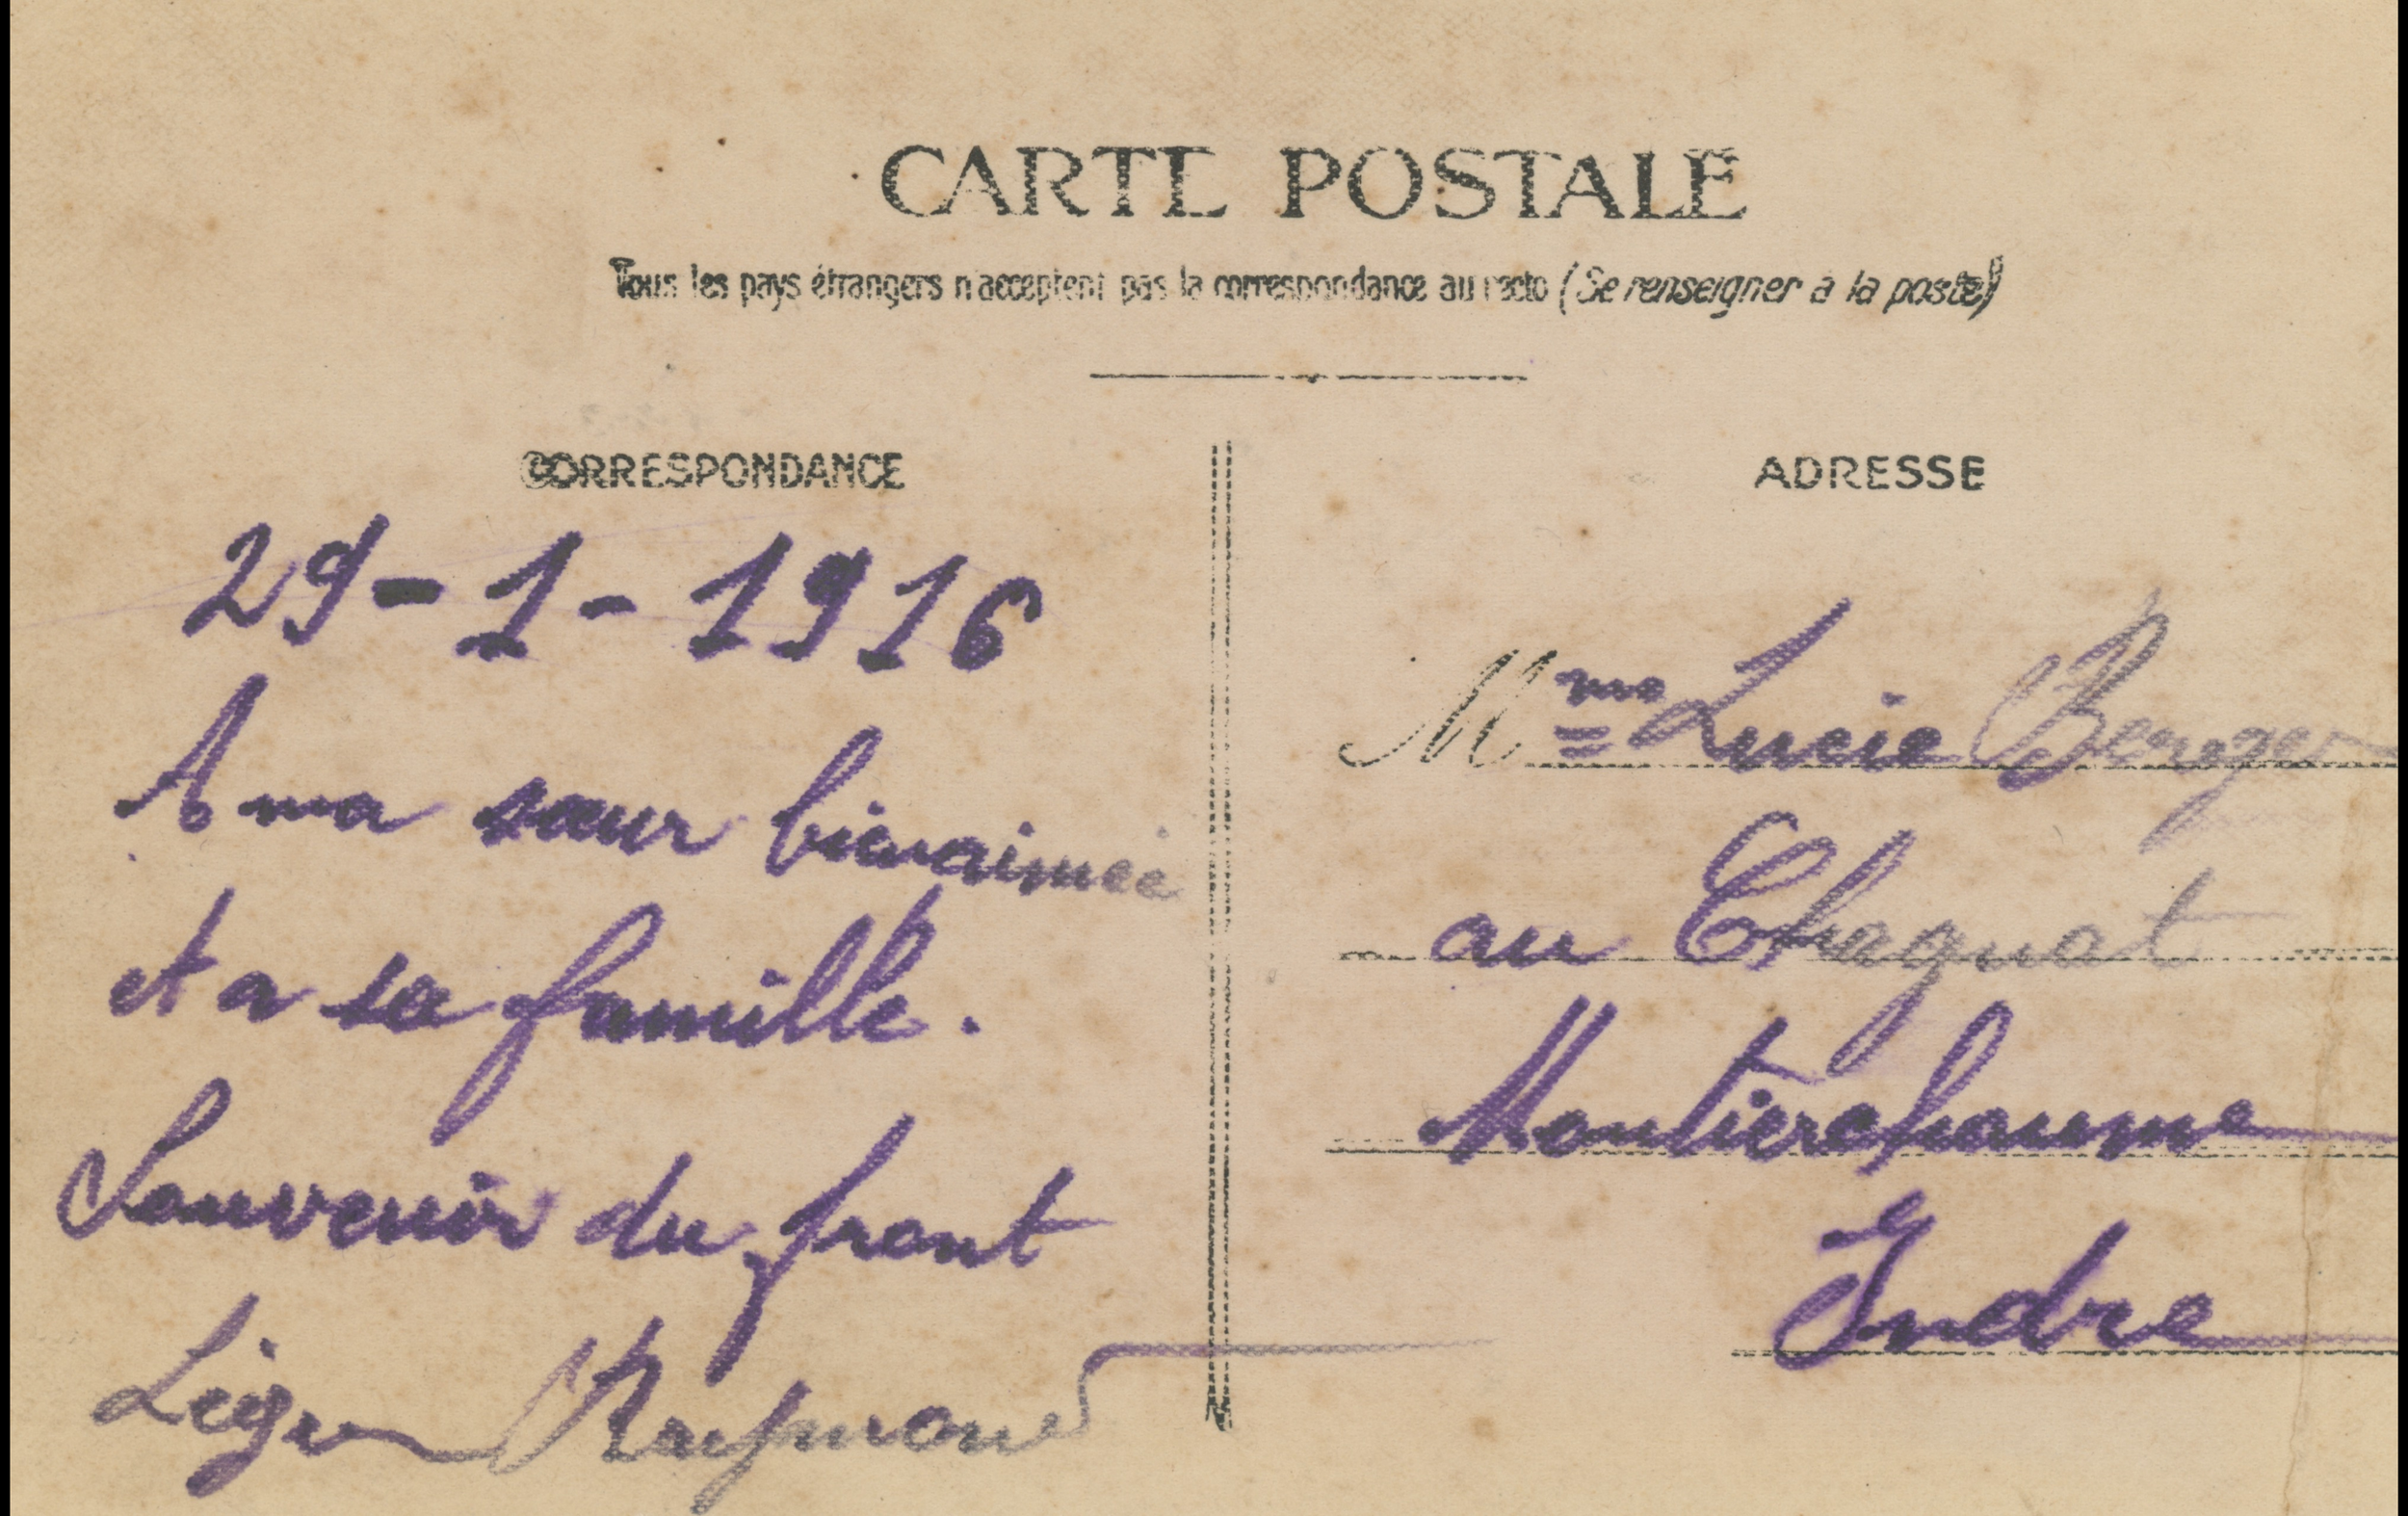 CARTE POSTALE
Tous les pays étrangers n'acceptent pas la correspondance au recto (Se renseigner à la poste)
CORRESPONDANCE
29-1-1916
A ma sœur bienaimée
et a sa famille.
Souvenir du front
Léger Raymond
ADRESSE
Mme Lucie Berger
au Chagnat
Montierchaume
Indre